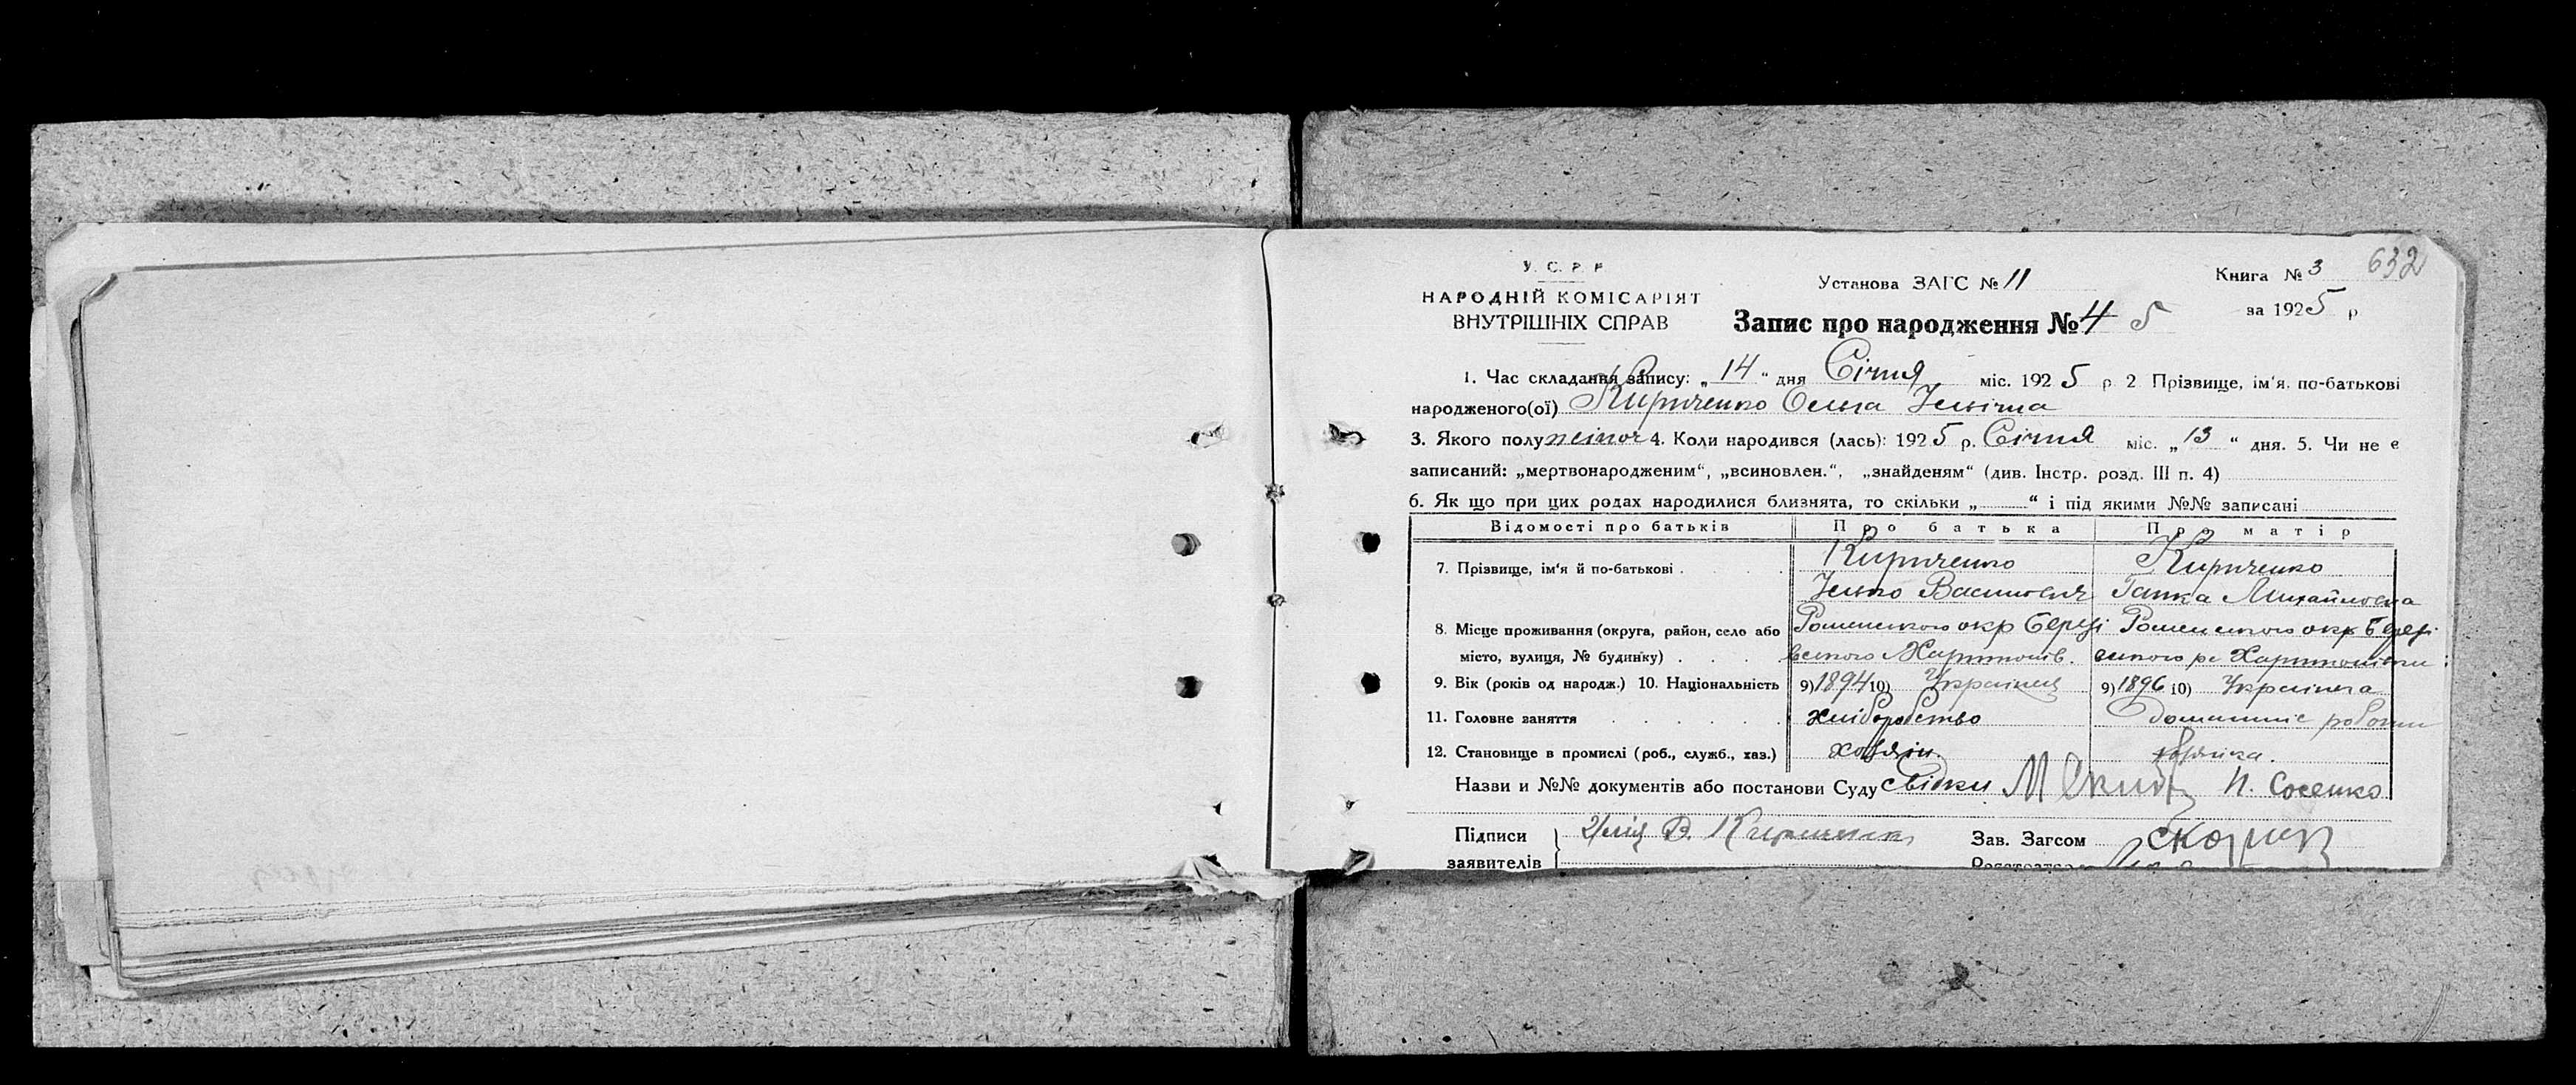 632
У. С. Р. Р.
НАРОДНІЙ КОМІСАРІЯТ
ВНУТРІШНІХ СПРАВ
Установа ЗАГС № 11
Книга № 3
Запис про народження № 4 5
за 1925 р
1. Час складання запису: „14“ дня Січня міс. 1925 р. 2 Прізвище, ім'я. по-батькові
народженого(ої) Кириченко Ольга Ільівна
3. Якого полу жіноч 4. Коли народився (лась): 1925 р. Січня міс. „13“ дня. 5. Чи не є
записаний: „мертвонародженим“, „всиновлен.“, „знайденям“ (див. Інстр. розд. III п. 4)
6. Як що при цих родах народилися близнята, то скільки „ “ і під якими №№ записані
Відомості про батьків Про батька Про матір
7. Прізвище, ім'я й по-батькові Кириченко Кириченко
Ілько Василович Ганка Михайловна
8. Місце проживання (округа, район, село або Роменського окр Бере Роменського окр Бере
місто, вулиця, № будинку) вського вського ра
9. Вік (років од народж.) 10. Національність 9) 1894 10) Українец 9) 1896 10) Українка
11. Головне заняття хліборобство домашніе роботи
12. Становище в промислі (роб., служб., хаз.) хозяін хозяйка.
Назви и №№ документів або постанови Суду Свідки М И. Сосенко
Підписи В. Кириченко Зав. Загсом
заявителів Реєстратор